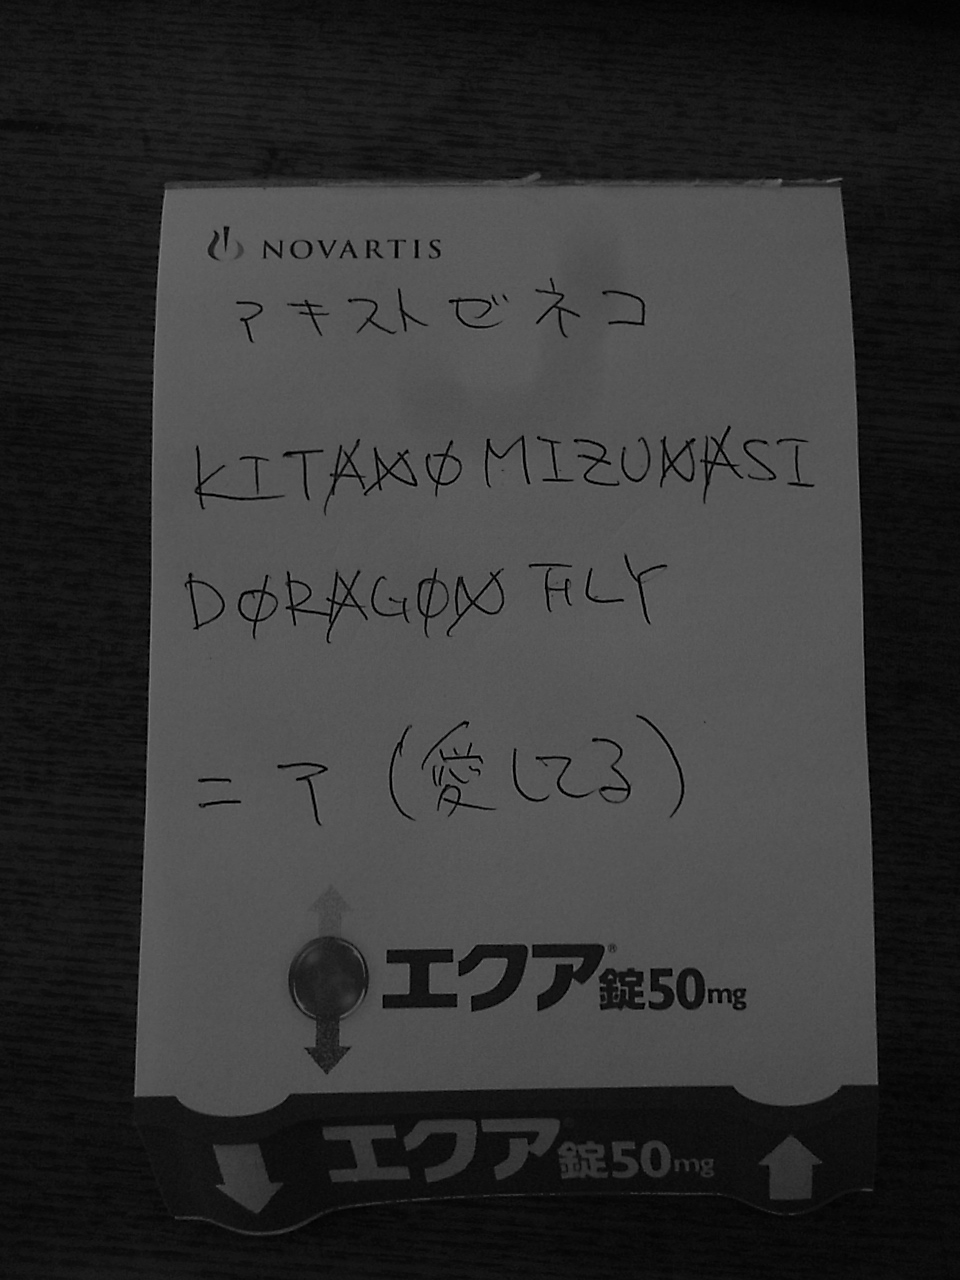 NOVARTIS
アキストゼネコ
KITANO MIZUNASI
DORAGON FLY
ニア (愛してる)
エクア®錠50mg
エクア錠50mg